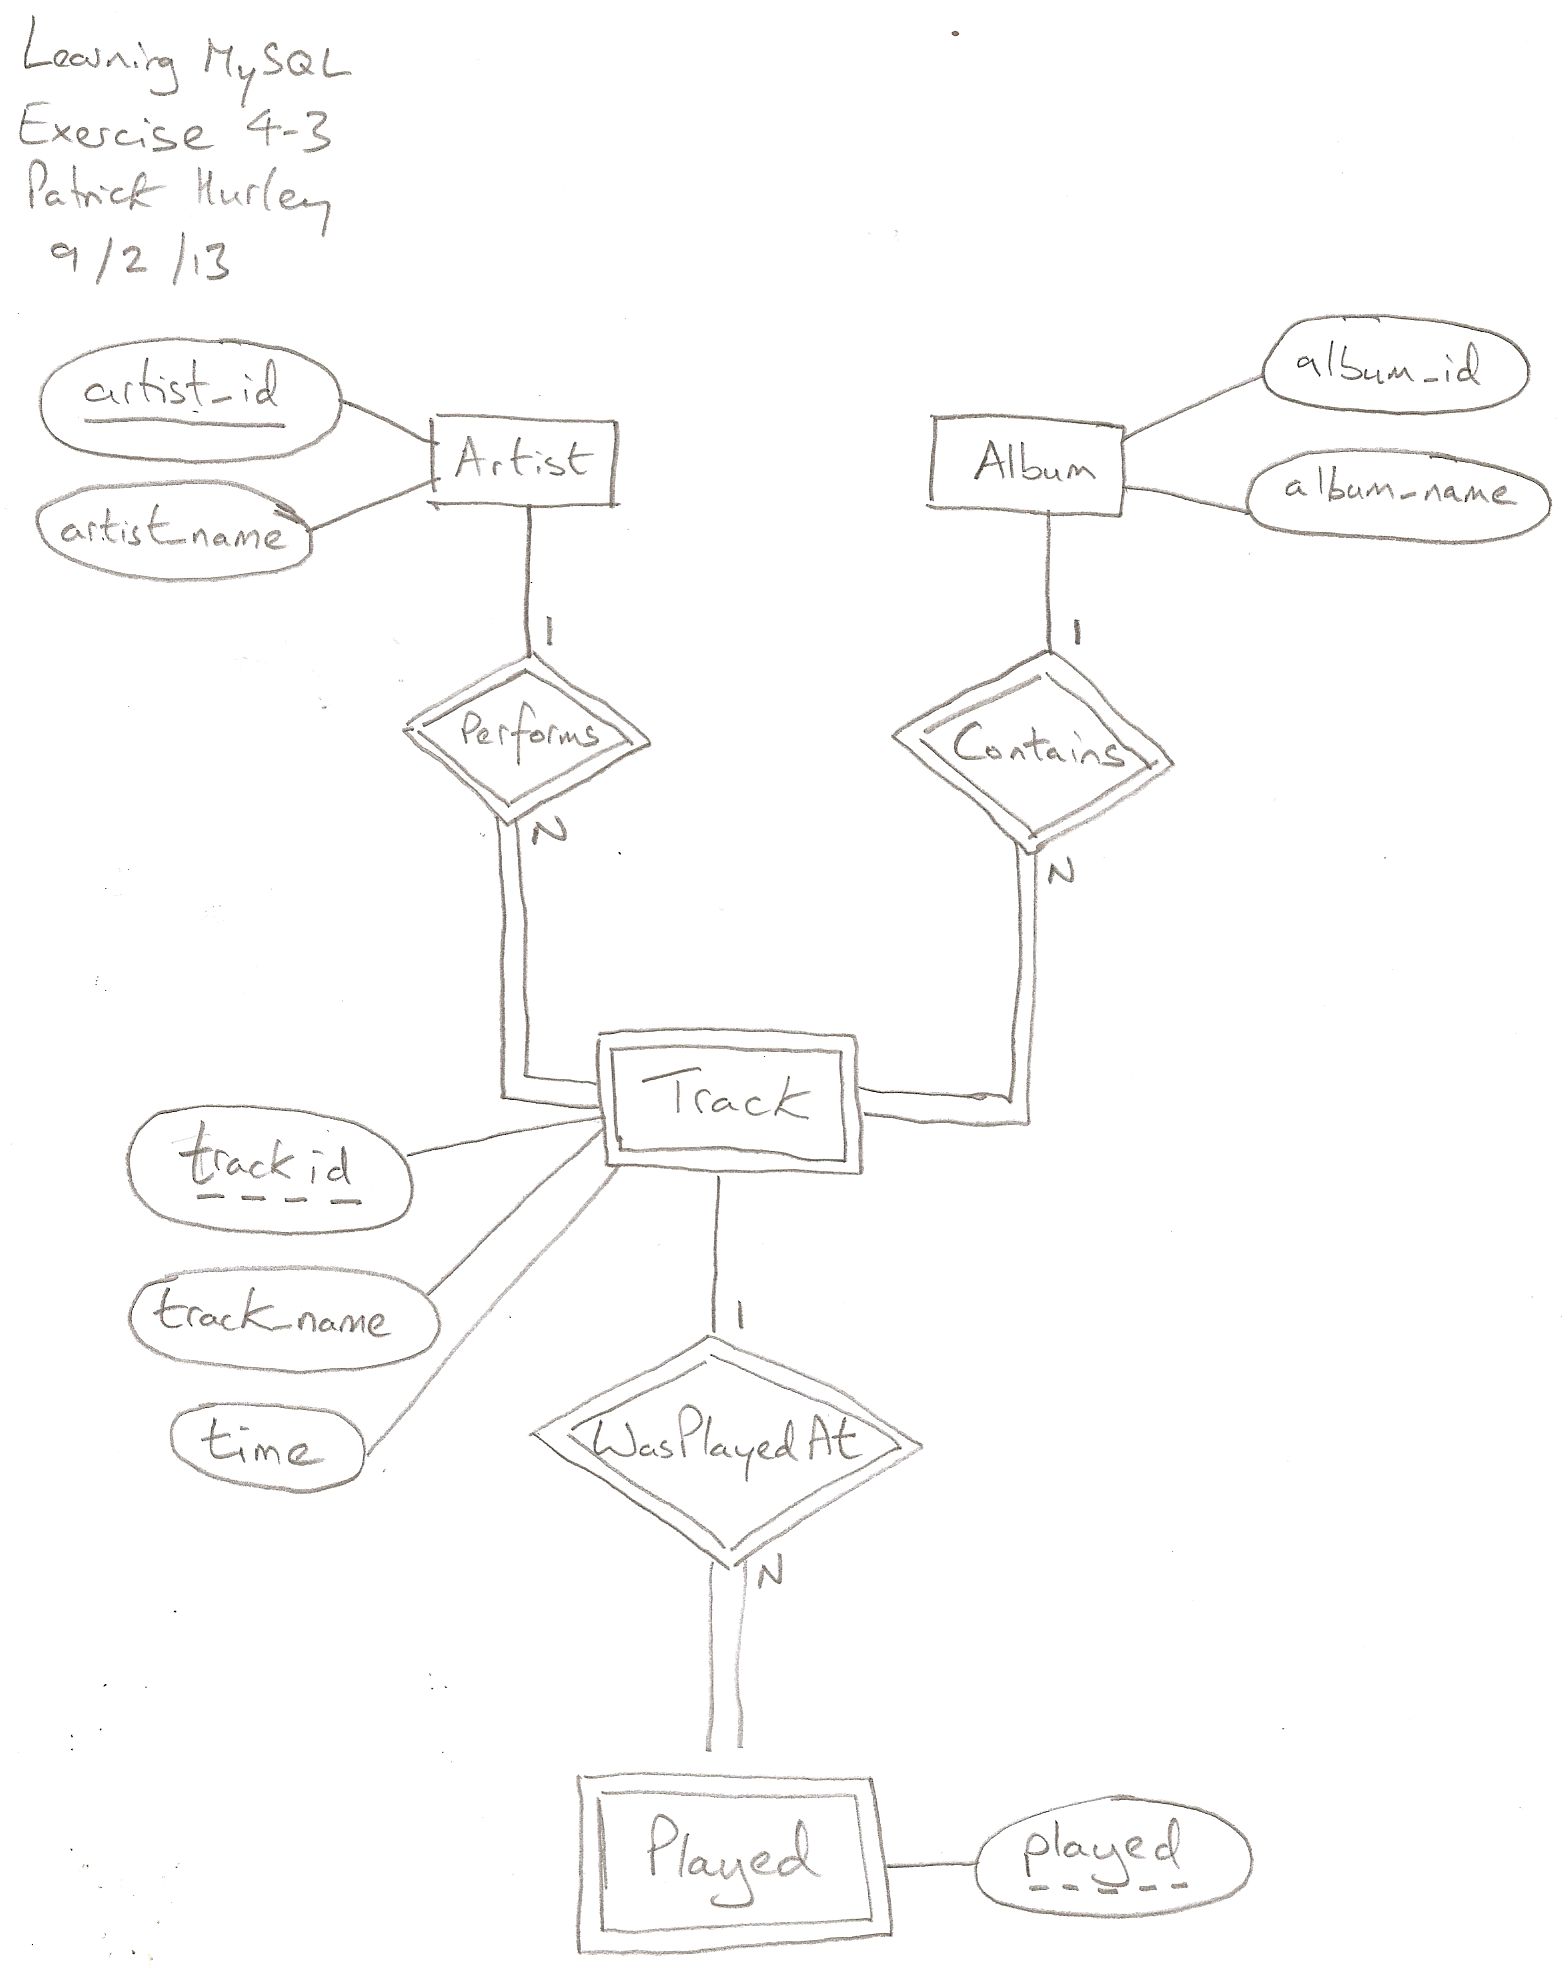 Learning MySQL
Exercise 4-3
Patrick Hurley
9/2/13
artist_id
Artist
artist_name
album_id
Album
album_name
1
1
Performs
Contains
N
N
Track
track id
track_name
time
1
WasPlayedAt
N
Played
played